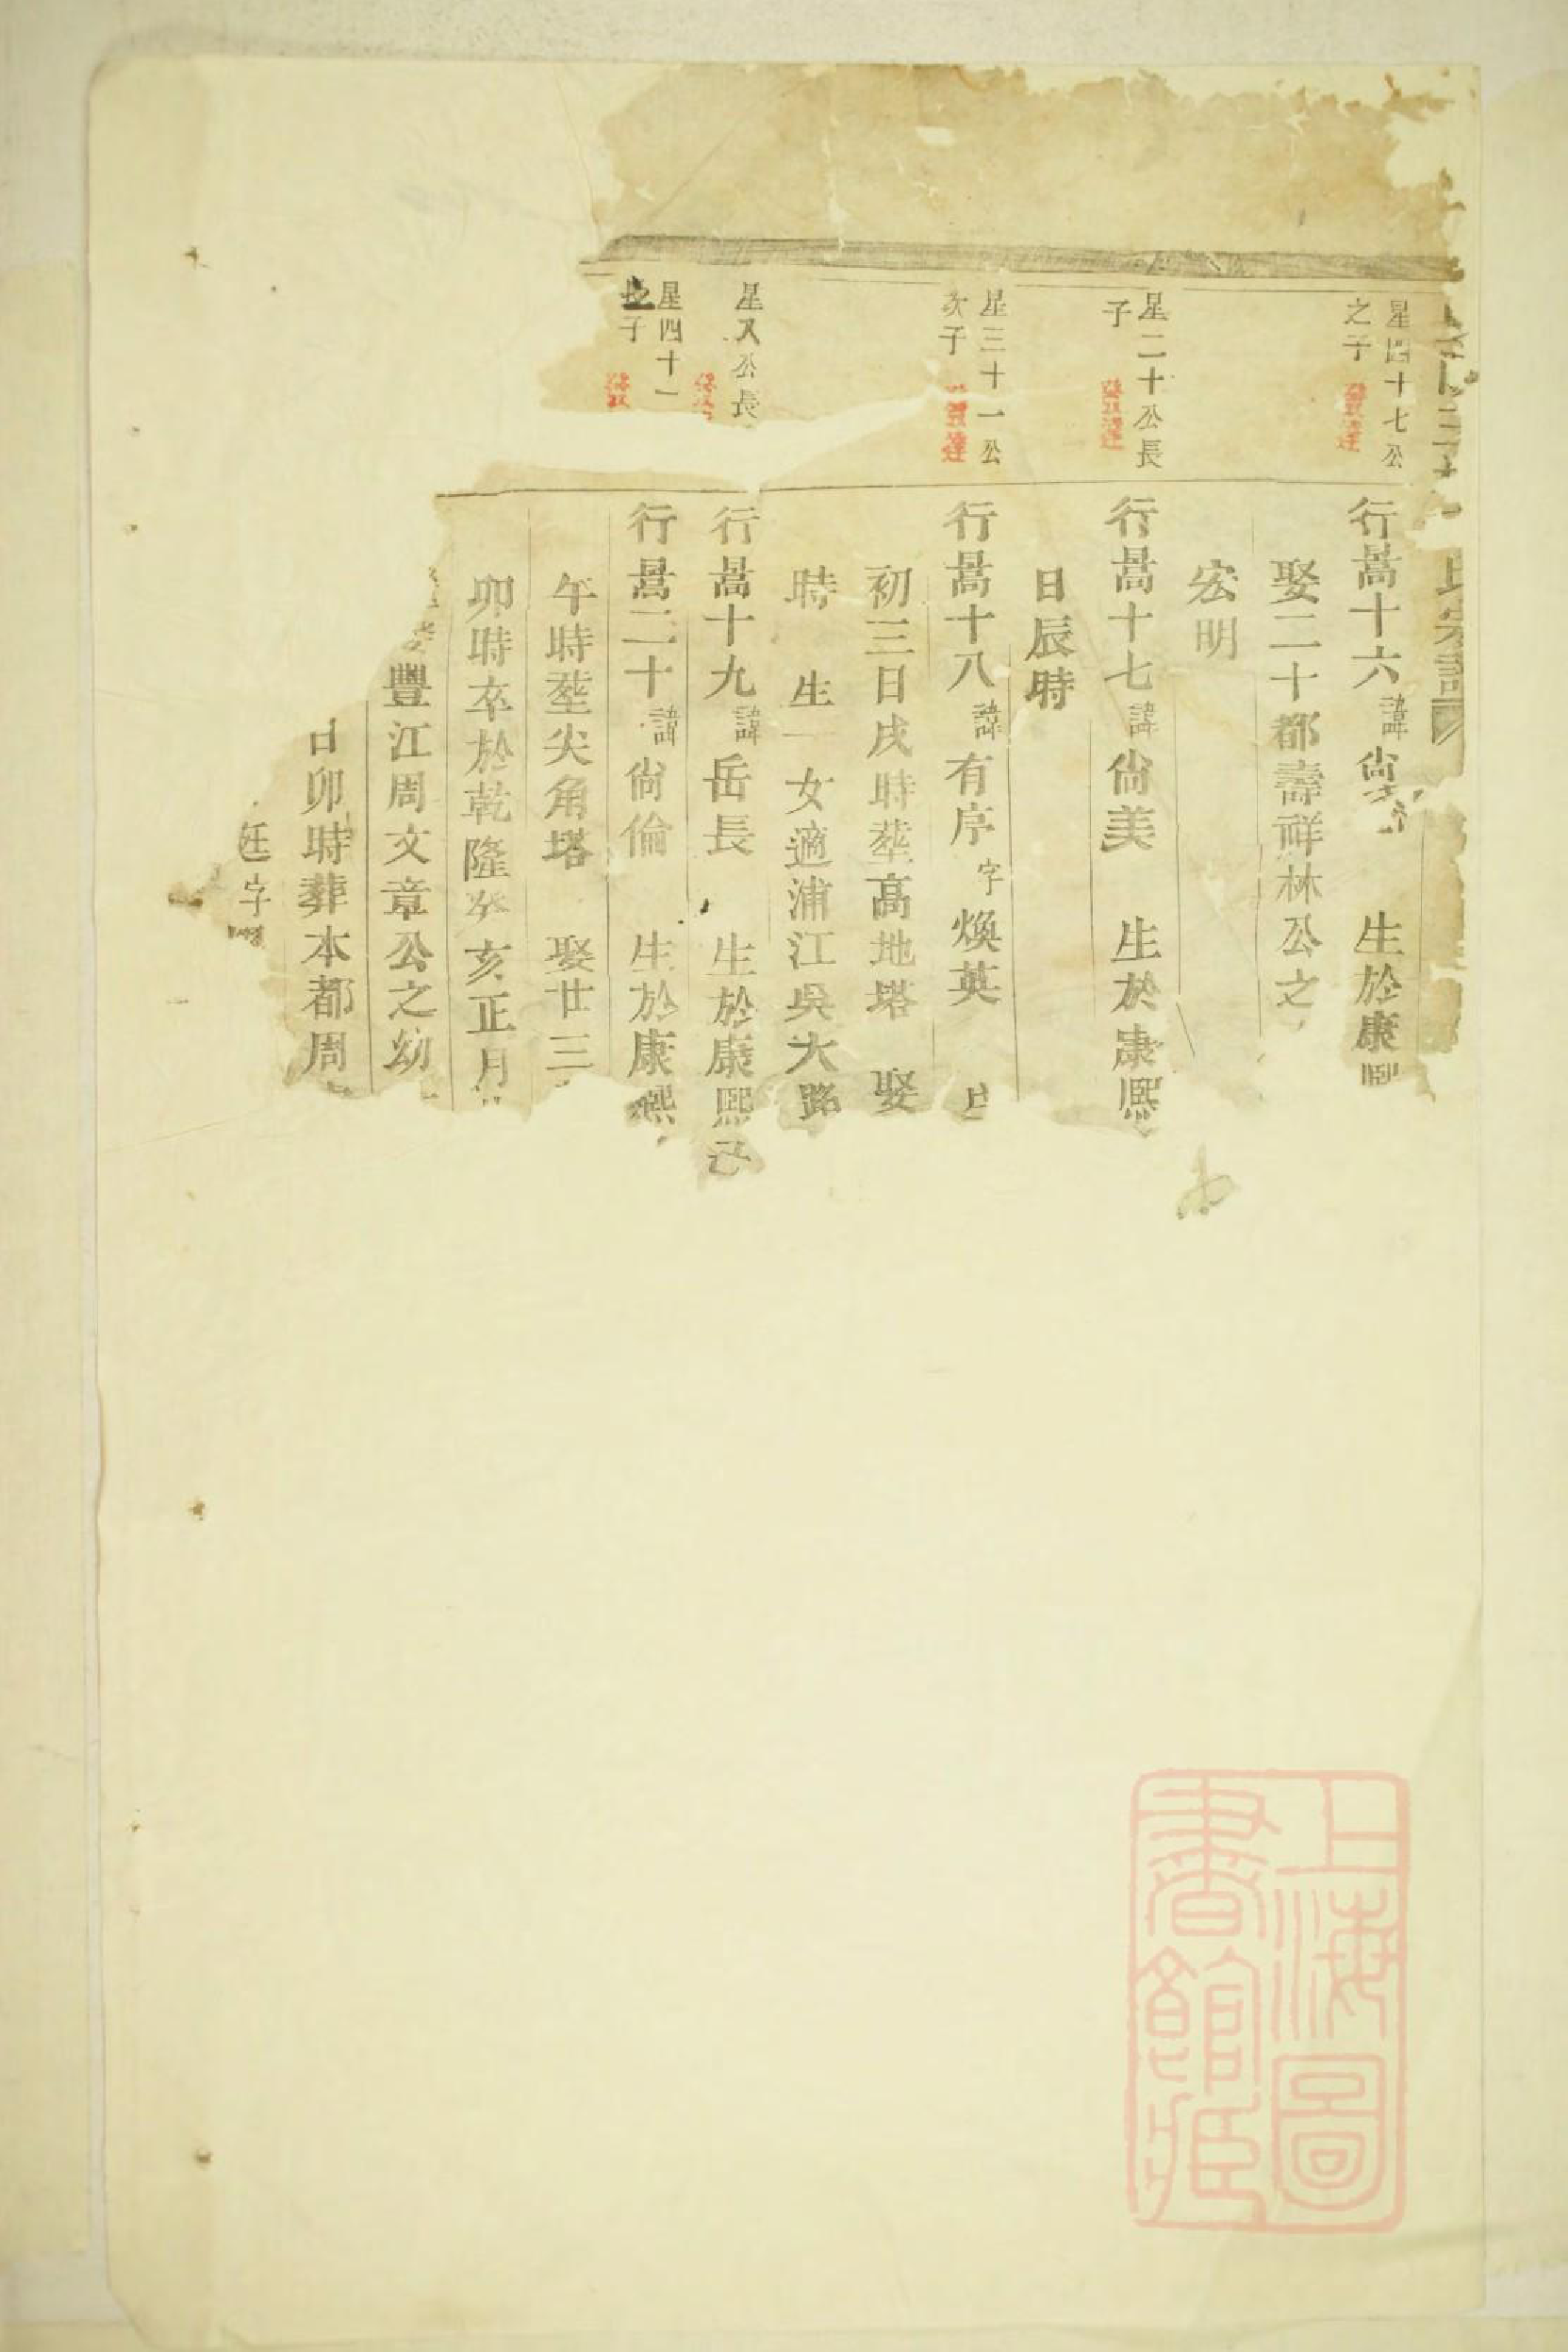 氏宗譜
星四十七公
之子
行暠十六諱尙 生於康熙
娶二十都壽祥林公之
宏明
星二十公長
子
發達
行暠十七諱尙美 生於康熙
日辰時
星三十一公
次子
發達
行暠十八諱有序字煥英
初三日戌時塟高地塔 娶
時 生一女適浦江吳大路
星又公長
行暠十九諱岳長 生於康熙己
星四十一
長子
發
行暠二十諱尙倫 生於康熙
午時塟尖角塔 娶廿三
卯時卒於乾隆癸亥正月
豐江周文章公之幼
日卯時葬本都周
廷字
上海圖
書館藏